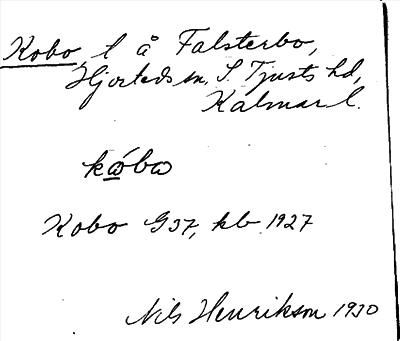 Kobo, l å Falsterbo,
Hjorteds sn, S. Tjusts hd,
Kalmar l.
kωbω
Kobo G37, kb 1927
Nils Henrikson 1930